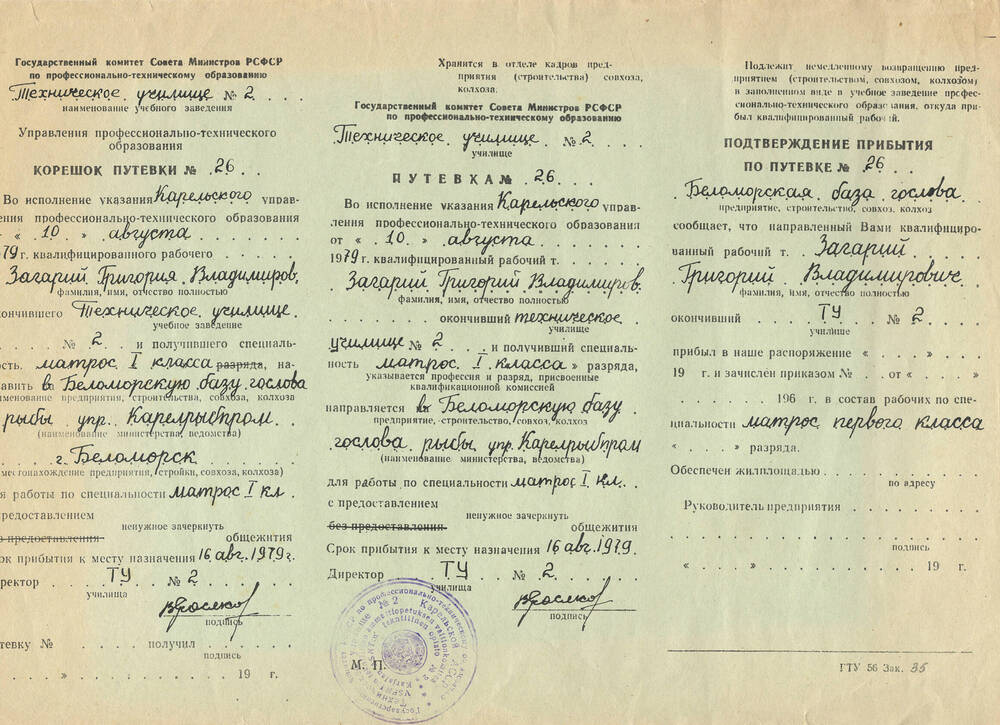 Государственный комитет Совета Министров РСФСР
по профессионально-техническому образованию
Техническое училище № 2
наименование учебного заведения
Управления профессионально-технического
образования
КОРЕШОК ПУТЕВКИ № 26
Во исполнение указания Карельского управ-
ения профессионально-технического образования
« 10 » августа
79 г. квалифицированного рабочего
Загарий Григория Владимиров.
фамилия, имя, отчество полностью
кончившего Техническое училище
учебное заведение
№ 2 и получившего специаль-
ость матрос I класса разряда, на-
авить в Беломорскую базу гослова
именование предприятия, строительства, совхоза, колхоза
рыбы упр. Карелрыбпром
(наименование министерства, ведомства)
г. Беломорск
местонахождение предприятия, стройки, совхоза, колхоза)
я работы по специальности матрос I кл.
предоставлением
ненужное зачеркнуть
з предоставления общежития
ок прибытия к месту назначения 16 авг. 1979 г.
ректор ТУ № 2
училища
подпись
тевку № получил
подпись
» 19 г.
Хранится в отделе кадров пред-
приятия (строительства) совхоза,
колхоза.
Государственный комитет Совета Министров РСФСР
по профессионально-техническому образованию
Техническое училище № 2
училище
ПУТЕВКА № 26
Во исполнение указания Карельского управ-
ления профессионально-технического образования
от « 10 » августа
1979 г. квалифицированный рабочий т.
Загарий Григорий Владимиров.
фамилия, имя, отчество полностью
окончивший техническое
училище
училище № 2 и получивший специаль-
ность матрос I класса » разряда,
указывается профессия и разряд, присвоенные
квалификационной комиссией
направляется в Беломорскую базу
предприятие, строительство, совхоз, колхоз
гослова рыбы упр. Карелрыбпром
(наименование министерства, ведомства)
для работы по специальности матрос I кл.
с предоставлением
ненужное зачеркнуть
без предоставления общежития
Срок прибытия к месту назначения 16 авг. 1979.
Директор ТУ № 2
училища
подпись
М. П.
Подлежит немедленному возвращению пред-
приятием (строительством, совхозом, колхозом)
в заполненном виде в учебное заведение профес-
сионально-технического образования, откуда при-
был квалифицированный рабочий.
ПОДТВЕРЖДЕНИЕ ПРИБЫТИЯ
ПО ПУТЕВКЕ № 26
Беломорская база гослова
предприятие, строительство, совхоз, колхоз
сообщает, что направленный Вами квалифициро-
ванный рабочий т. Загарий
Григорий Владимирович
фамилия, имя, отчество полностью
окончивший ТУ № 2
училище
прибыл в наше распоряжение « »
19 г. и зачислен приказом № от « »
196 г. в состав рабочих по спе-
циальности матрос первого класса
« » разряда.
Обеспечен жилплощадью
по адресу
Руководитель предприятия
подпись
« » 19 г.
ГТУ 56 Зак. 35